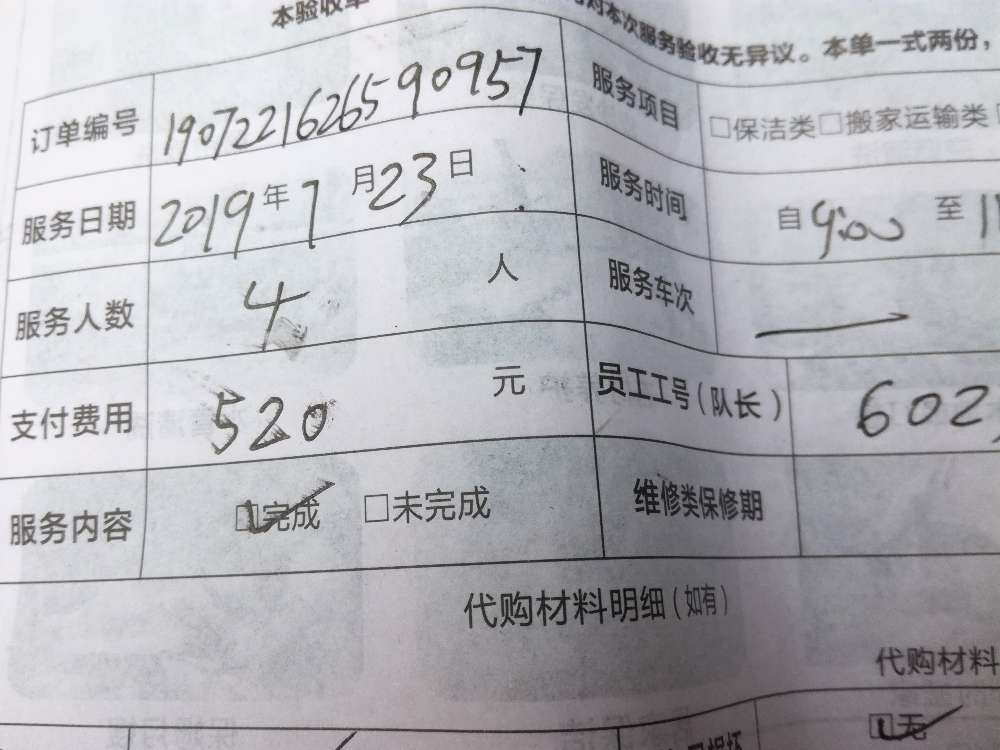 本验收单 对本次服务验收无异议。本单一式两份，
订单编号 1907221626590957 服务项目 □保洁类□搬家运输类
服务日期 2019年7月23日 服务时间 自9:00 至11
服务人数 4人 服务车次 —
支付费用 520元 员工工号（队长） 602
服务内容 ☑完成 □未完成 维修类保修期
代购材料明细（如有）
代购材料
☑无